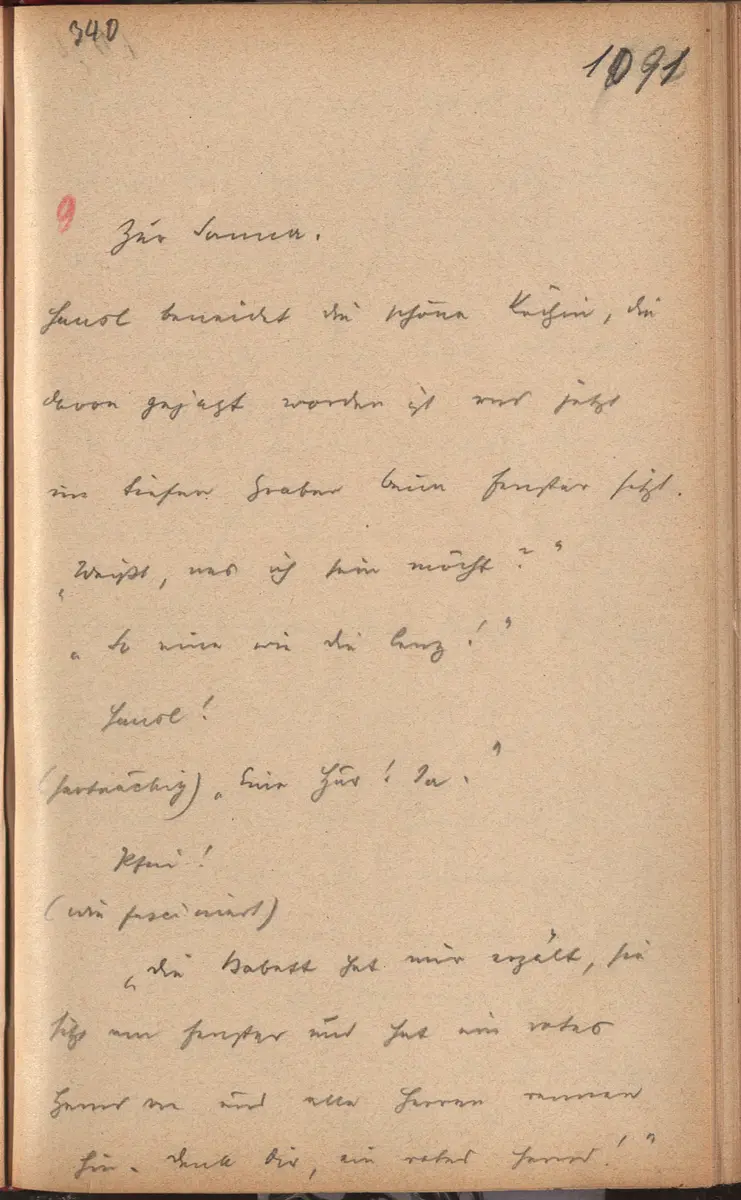 340
1091
9
Zur Sanna.
Hansl beneidet die schöne Köchin, die
davon gejagt worden ist und jetzt
im tiefen Graben beim Fenster sitzt.
„Weißt, was ich sein möcht?“
„So eine wie die Lenz!“
Hansl!
(hartnäckig) „Eine Hur! Ja.“
Pfui!
(wie fasciniert)
„die Babett hat mir erzält, sie
sitzt am Fenster und hat ein rotes
Hemd an und alle Herren rennen
hin. Denk dir, ein rotes Hemd!“